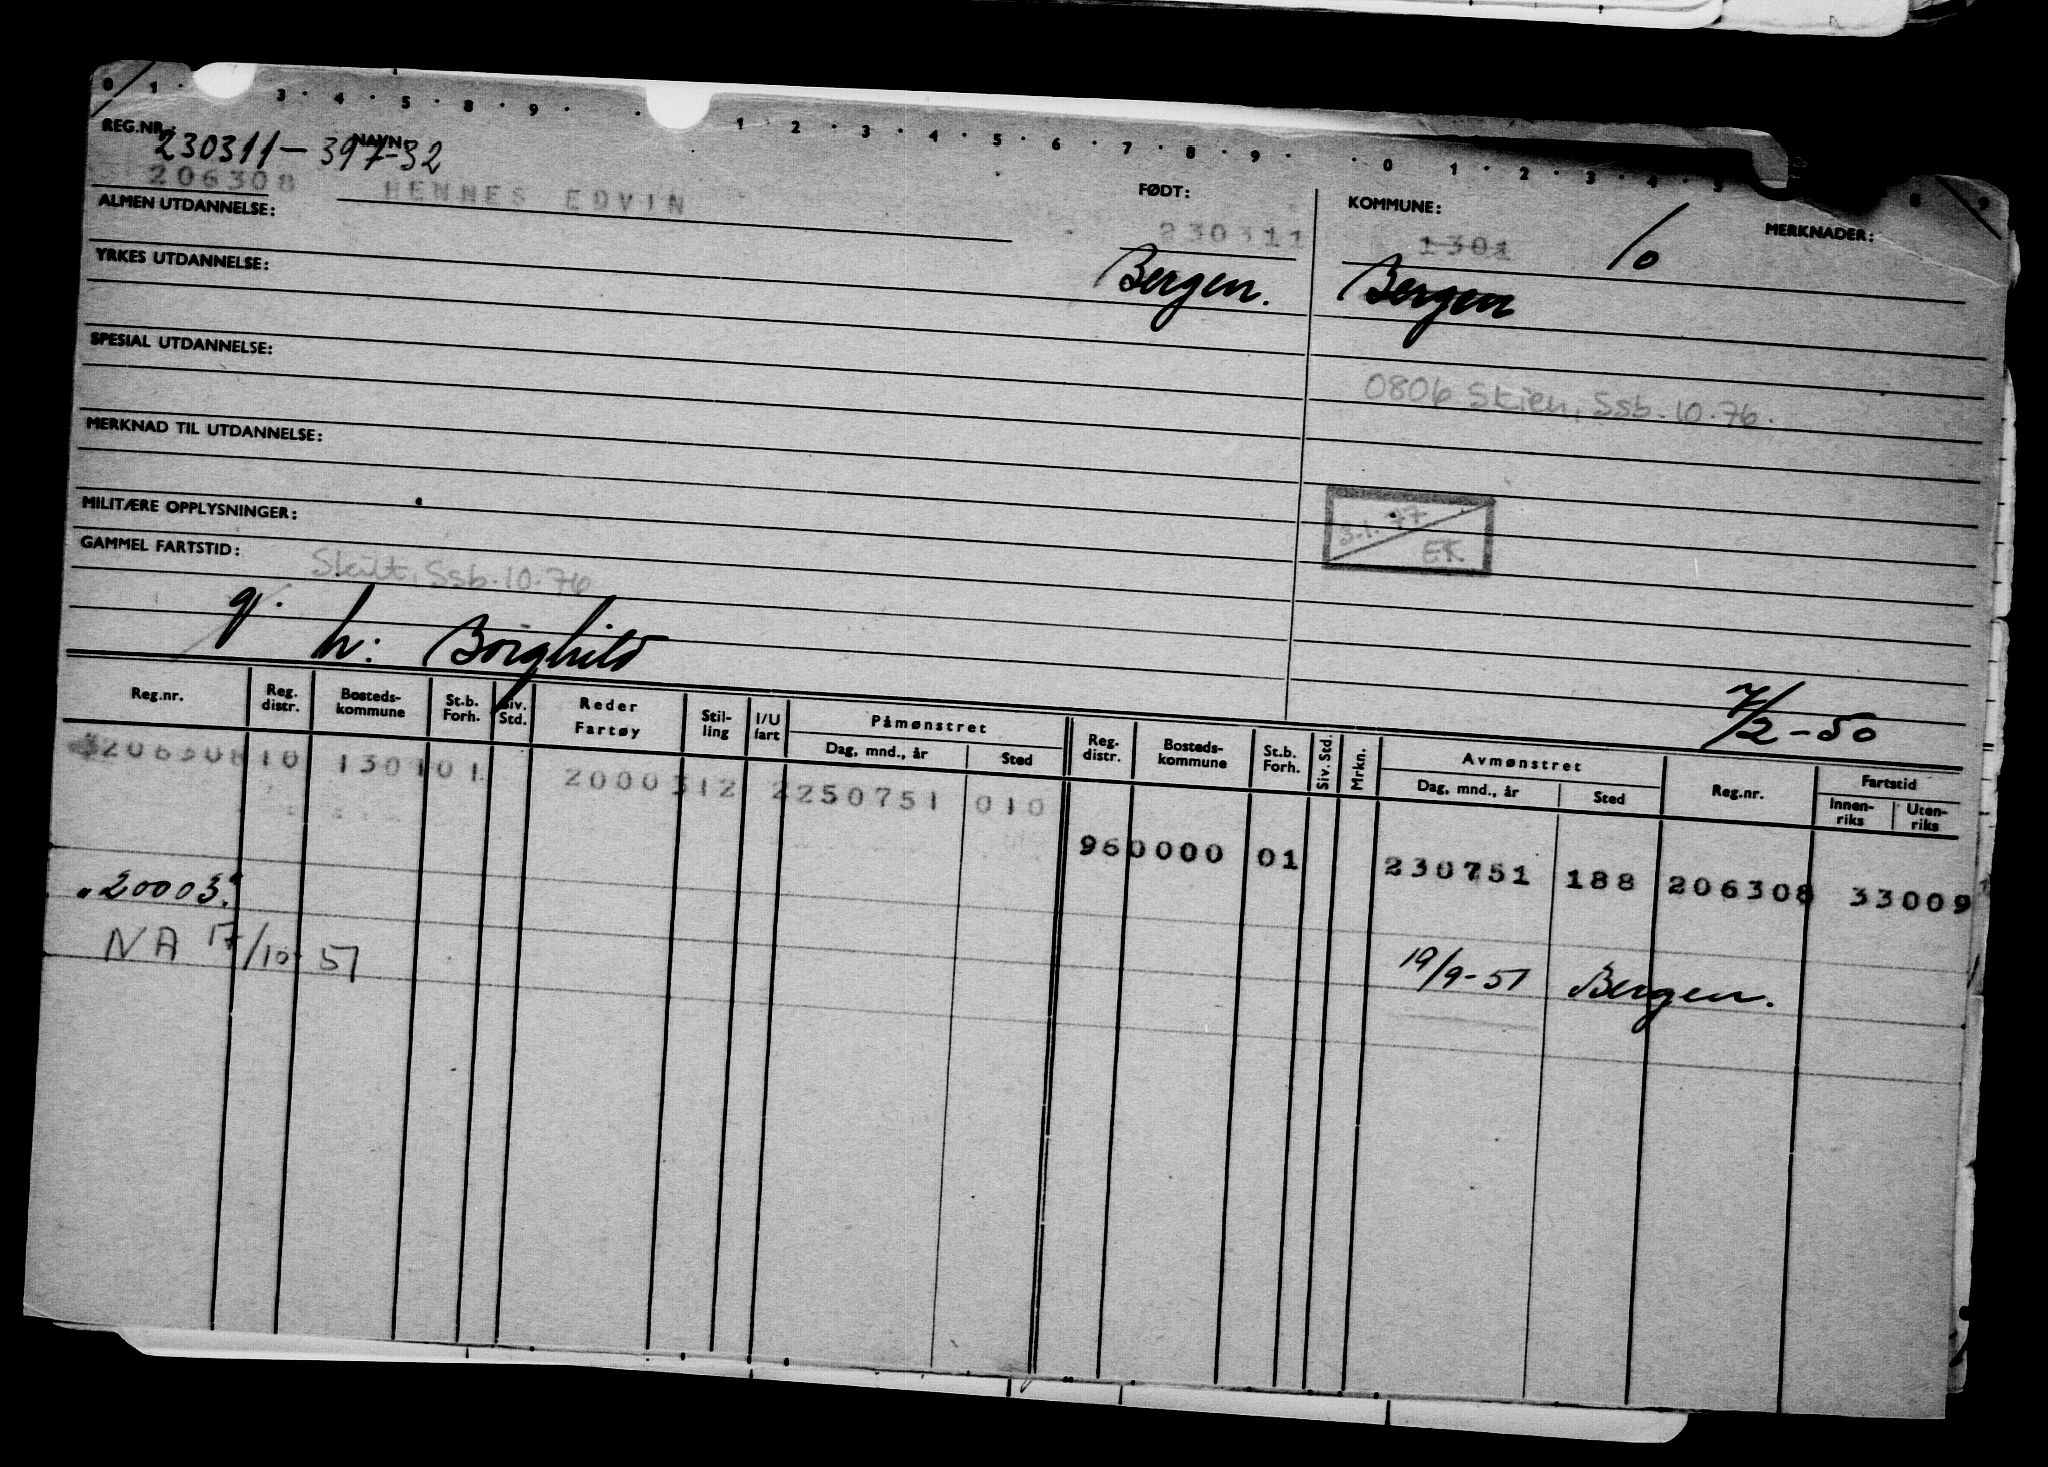 0 1 · 3 · 4 · 5 · 8 · 9 · · 1 2 · 3 · 4 · 5 · 6 · 7 · 8 · 9 · · 0 1 · 2 · 3 · 4 · 5 8 9
REG.NR.: 230311-397-32 NAVN:
206308 HENNES EDVIN
FØDT: 230311
Bergen.
KOMMUNE: 1301 10
Bergen
MERKNADER:
ALMEN UTDANNELSE:
YRKES UTDANNELSE:
SPESIAL UTDANNELSE:
0806 Skien, Ssb. 10.76.
MERKNAD TIL UTDANNELSE:
MILITÆRE OPPLYSNINGER:
3.1.77 EK
GAMMEL FARTSTID:
Skilt, Ssb. 10.76
g. h: Borghild
7/2-50
Reg.nr. Reg. distr. Bosteds-kommune St.b. Forh. Siv. Std. Reder Fartøy Stil-ling I/U fart Påmønstret Dag, mnd., år Sted Reg. distr. Bosteds-kommune St.b. Forh. Siv. Std. Mrkn. Avmønstret Dag, mnd., år Sted Reg.nr. Fartstid Innen-riks Uten-riks
206308 10 1301 01 2000 312 2 250751 010
96 0000 01 230751 188 206308 33009
20003. 19/9-51 Bergen.
NA 17/10-51